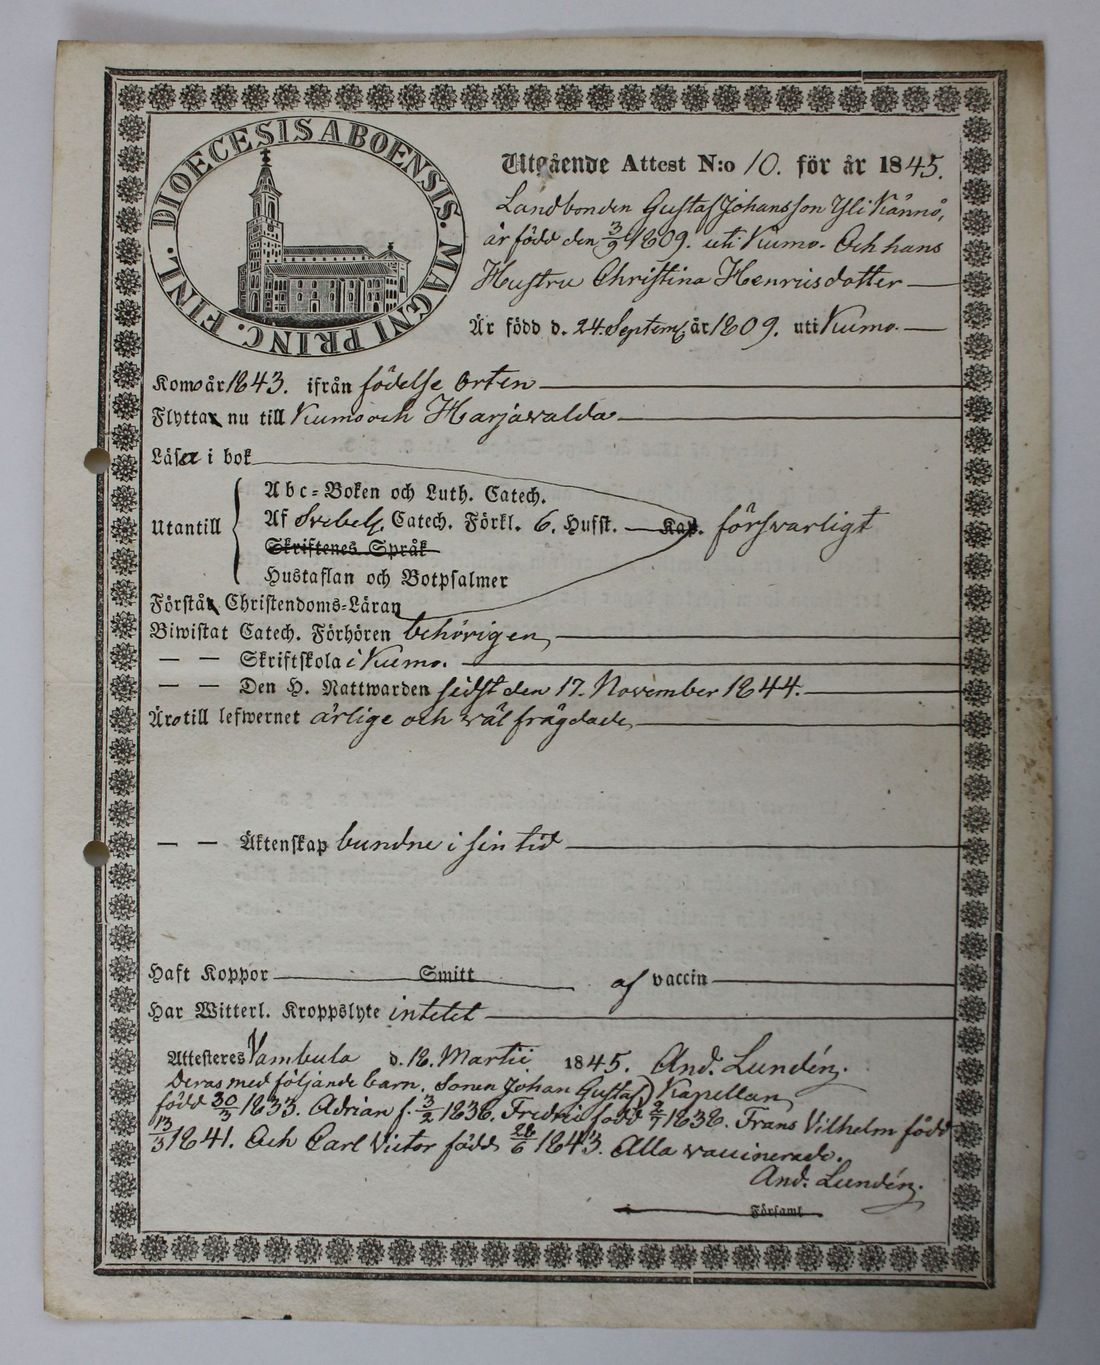 DIOECESIS ABOENSIS. MAGNI PRINC. FINL.
Utgående Attest N:o 10. för år 1845.
Landbonden Gustaf Johansson Yli Kännö,
är född den 3/9 1809. uti Kumo. Och hans
Hustru Christina Henricsdotter
Är född d. 24. Septemb. år 1809. uti Kumo.
Komo år 1843. ifrån födelse orten
Flytta nu till Kumo och Harjavalda
Läsa i bok
Abc-Boken och Luth. Catech.
Utantill Af Svebels. Catech. Förkl. 6. Hufst. Kap. försvarligt
Skriftenes Språk
Hustaflan och Botpsalmer
Förstå Christendoms-Läran
Biwistat Catech. Förhören behörigen,
— — Skriftskola i Kumo.
— — Den H. Nattwarden sidst den 17. November 1844.
Äro till lefwernet ärlige och välfrägdade,
— — Äktenskap bundne i sin tid
Haft Koppor Smitt af vaccin
Har Witterl. Kroppslyte intetet
Attesteres Vambula d. 18. Martii 1845. And. Lundén.
Deras med följande barn. Sonen Johan Gustaf Kapellan
född 30/3 1833. Adrian f. 3/2 1836. Fredric född 2/7 1838. Frans Vilhelm född
13/3 1841. Och Carl Victor född 28/6 1843. Alla vaccinerade.
And. Lundén.
Församl